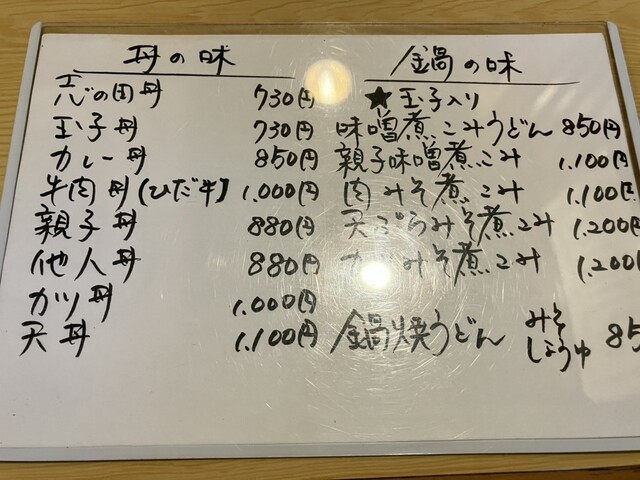 丼の味
志の田丼 730円
玉子丼 730円
カレー丼 850円
牛肉丼(ひだ牛) 1.000円
親子丼 880円
他人丼 880円
カツ丼 1.000円
天丼 1.100円
鍋の味
★玉子入り
味噌煮こみうどん 850円
親子味噌煮こみ 1.100円
肉みそ煮こみ 1.100円
天ぷらみそ煮こみ 1.200円
みそ煮こみ 1.200
鍋焼うどん みそ しょうゆ 85